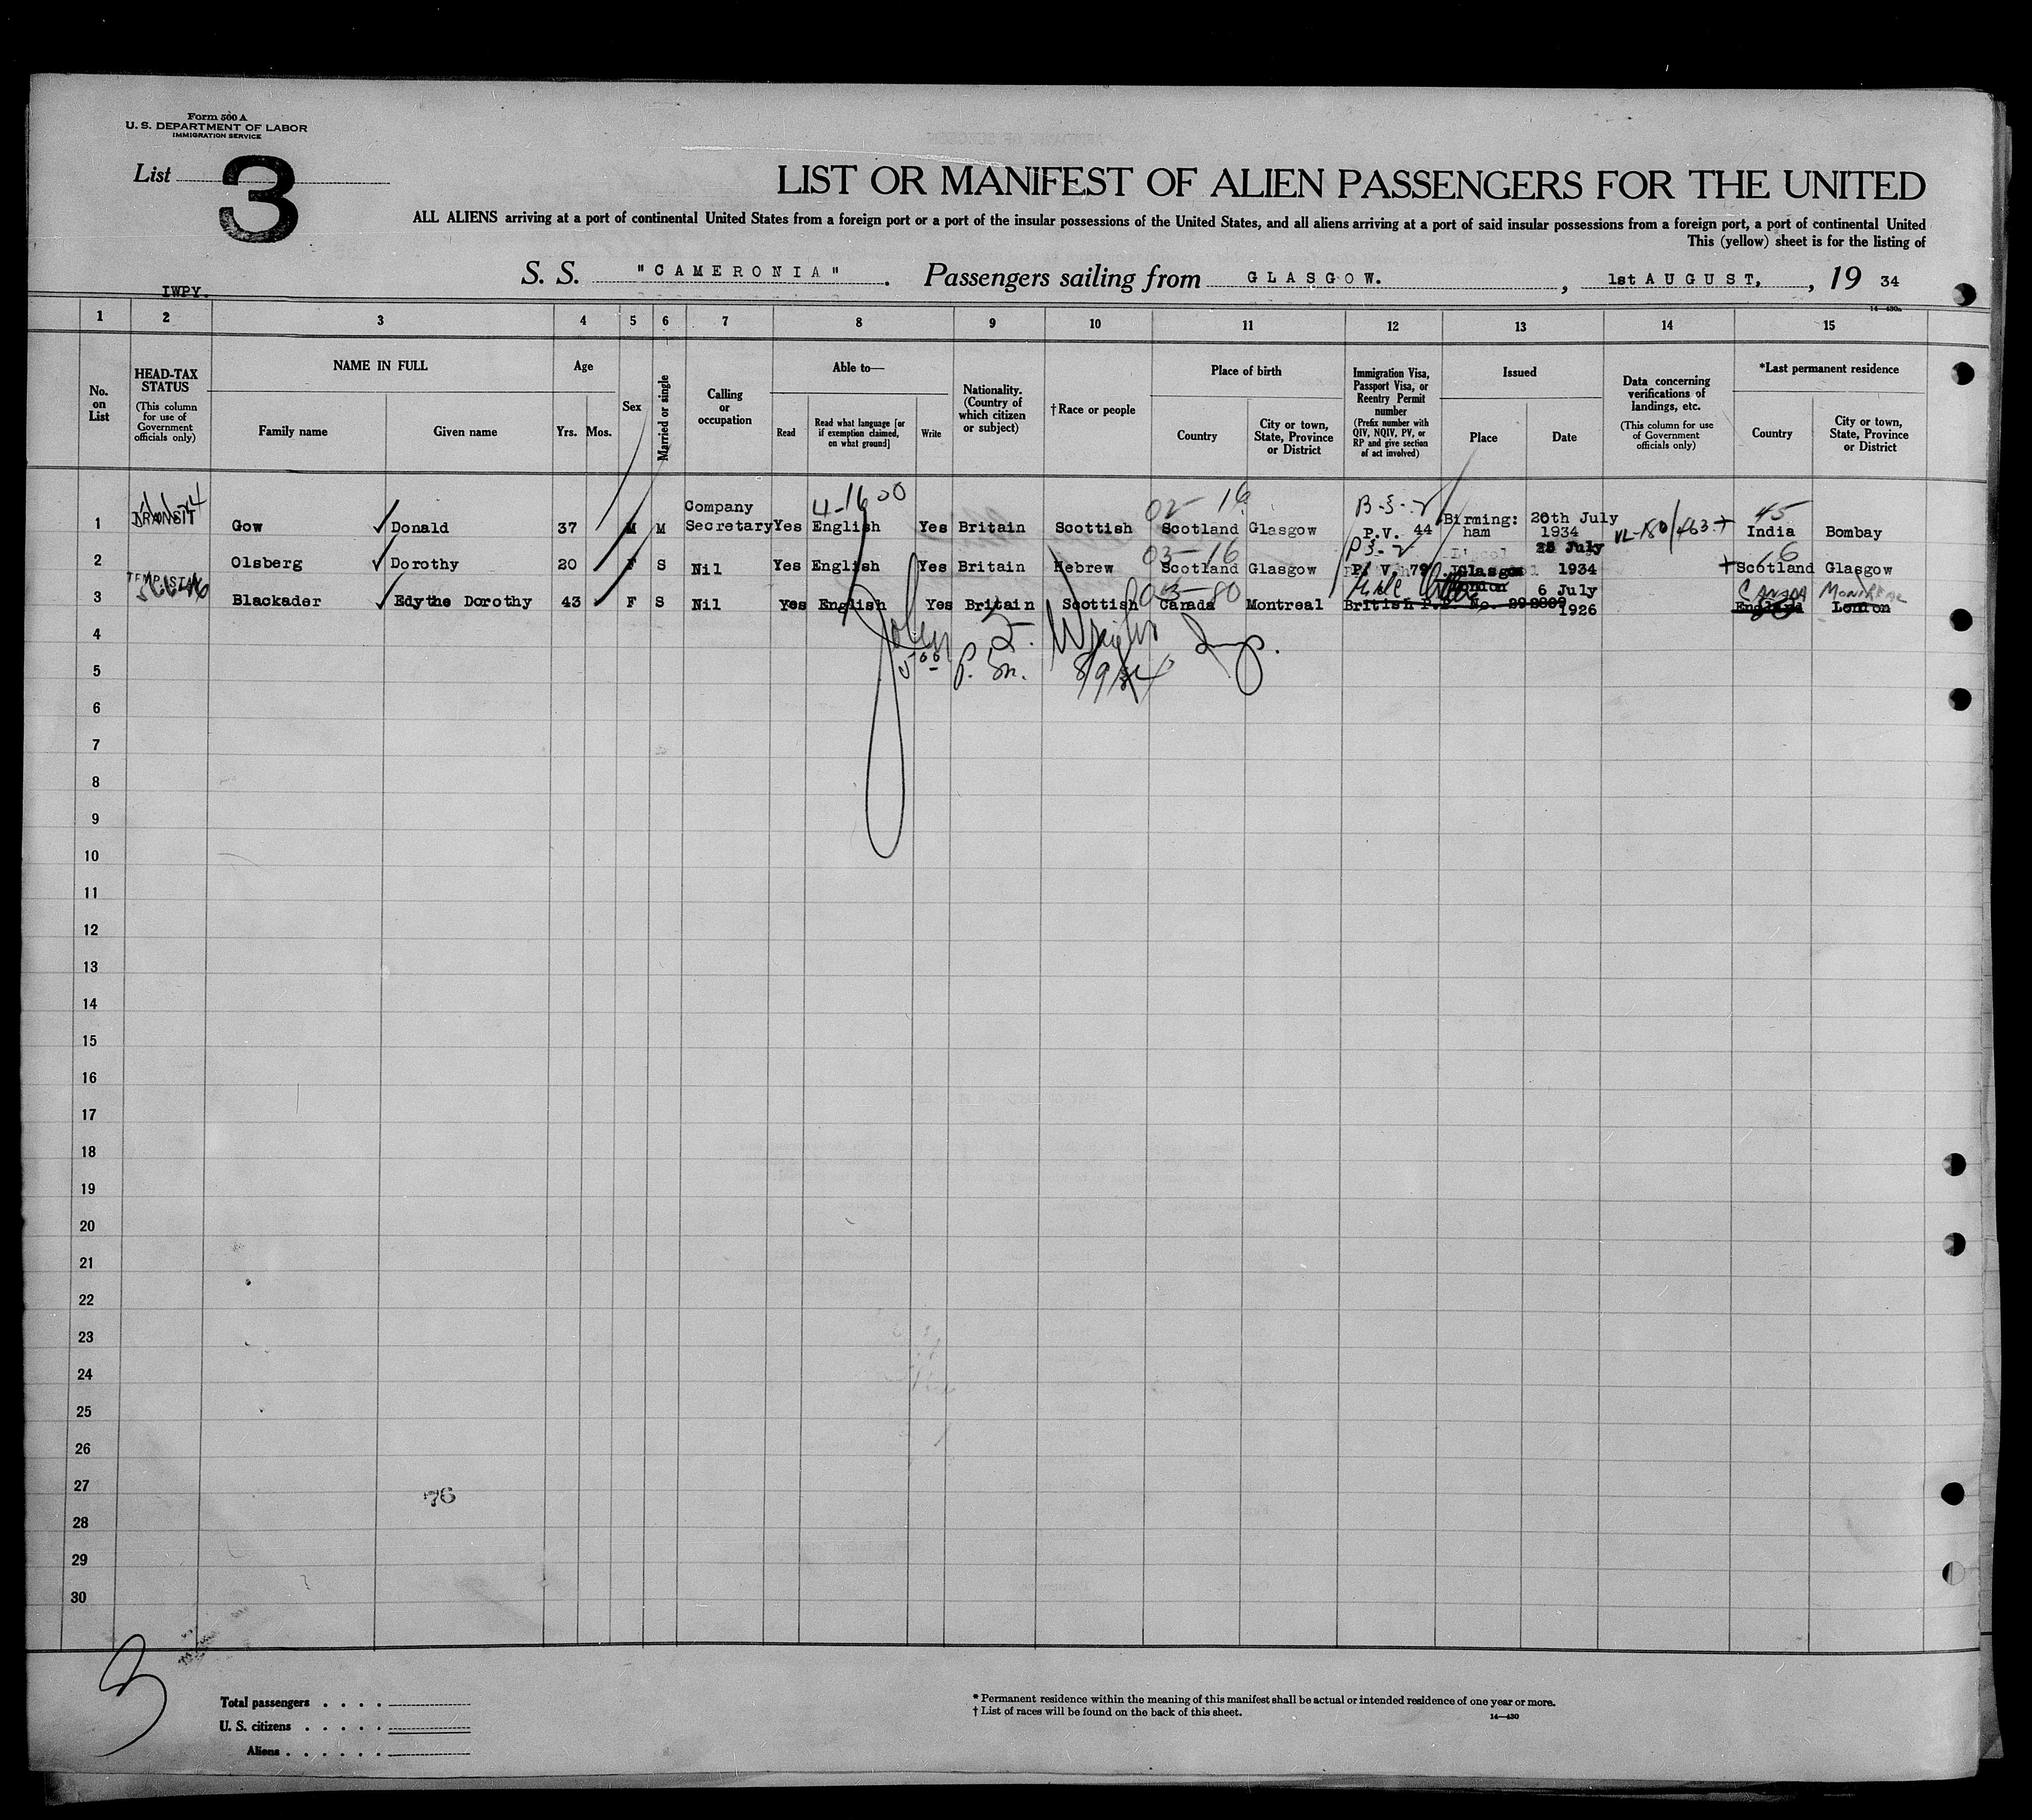 Form 500 A
U. S. DEPARTMENT OF LABOR
IMMIGRATION SERVICE
List 3
LIST OR MANIFEST OF ALIEN PASSENGERS FOR THE UNITED
ALL ALIENS arriving at a port of continental United States from a foreign port or a port of the insular possessions of the United States, and all aliens arriving at a port of said insular possessions from a foreign port, a port of continental United
This (yellow) sheet is for the listing of
S. S. "CAMERONIA". Passengers sailing from GLASGOW., 1st AUGUST, , 19 34
IWPY.
14—430a
1 2 3 4 5 6 7 8 9 10 11 12 13 14 15
No. on List
HEAD-TAX STATUS
(This column for use of Government officials only)
NAME IN FULL
Family name Given name
Age
Yrs. Mos.
Sex
Married or single
Calling or occupation
Able to—
Read Read what language [or if exemption claimed, on what ground] Write
Nationality. (Country of which citizen or subject)
†Race or people
Place of birth
Country City or town, State, Province or District
Immigration Visa, Passport Visa, or Reentry Permit number
(Prefix number with QIV, NQIV, PV, or RP and give section of act involved)
Issued
Place Date
Data concerning verifications of landings, etc.
(This column for use of Government officials only)
*Last permanent residence
Country City or town, State, Province or District
1 TRANSIT Gow Donald 37 M M Company Secretary Yes English Yes Britain Scottish Scotland Glasgow P.V. 44 Birming: ham 20th July 1934 India Bombay
2 Olsberg Dorothy 20 F S Nil Yes English Yes Britain Hebrew Scotland Glasgow P. V. 79 Glasgow July 1934 Scotland Glasgow
3 Blackader Edythe Dorothy 43 F S Nil Yes English Yes Britain Scottish Canada Montreal British P.P. No. London 6 July 1926 England London
CANADA MONTREAL
4-1600
02-16
03-16
003-80
45
6
P. m. 8/9/34
4
5
6
7
8
9
10
11
12
13
14
15
16
17
18
19
20
21
22
23
24
25
26
27
76
28
29
30
3
Total passengers . . . .
U. S. citizens . . . . .
Aliens . . . . . .
* Permanent residence within the meaning of this manifest shall be actual or intended residence of one year or more.
† List of races will be found on the back of this sheet.
14—430